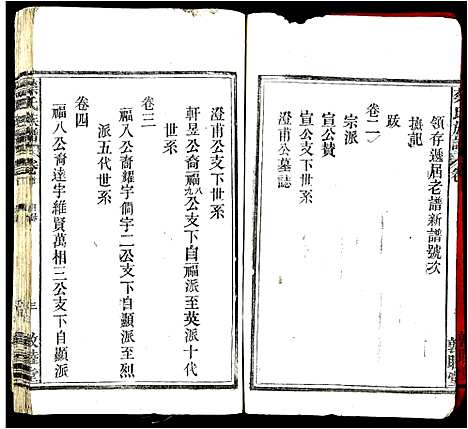 領存遞居老譜新譜號次
摭記
跋
卷二
宗派
宣公贊
宣公支下世系
澄甫公墓誌
澄甫公支下世系
軒昱公裔福八九公支下自福派至英派十代
世系
卷三
福八公裔耀宇僩字二公支下自顯派至烈
派五代世系
卷四
福八公裔達宇維賢萬相三公支下自顯派